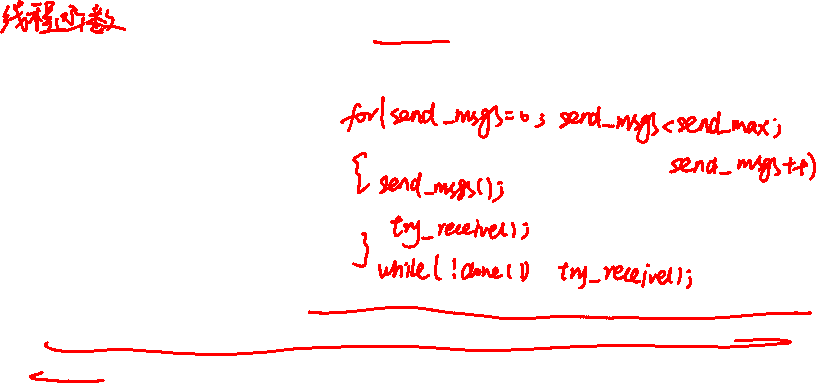 线程函数
for(send_msgs=0; send_msgs<send_max;
send_msgs++)
{ send_msgs();
try_receive();
}
while(!done()) try_receive();